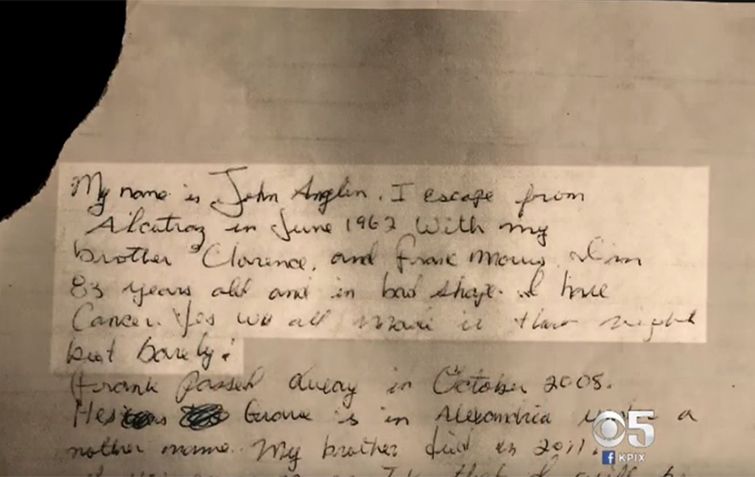 My name is John Anglin. I escape from
Alcatraz in June 1962 With my
brother Clarence, and Frank Morris. I'm
83 years old and in bad shape. I have
Cancer. Yes we all made it that night
but barely!
Frank Passed away in October 2005.
Hes Grave is in Alexandria under a
nother name. My brother died in 2011.
5
f KPIX